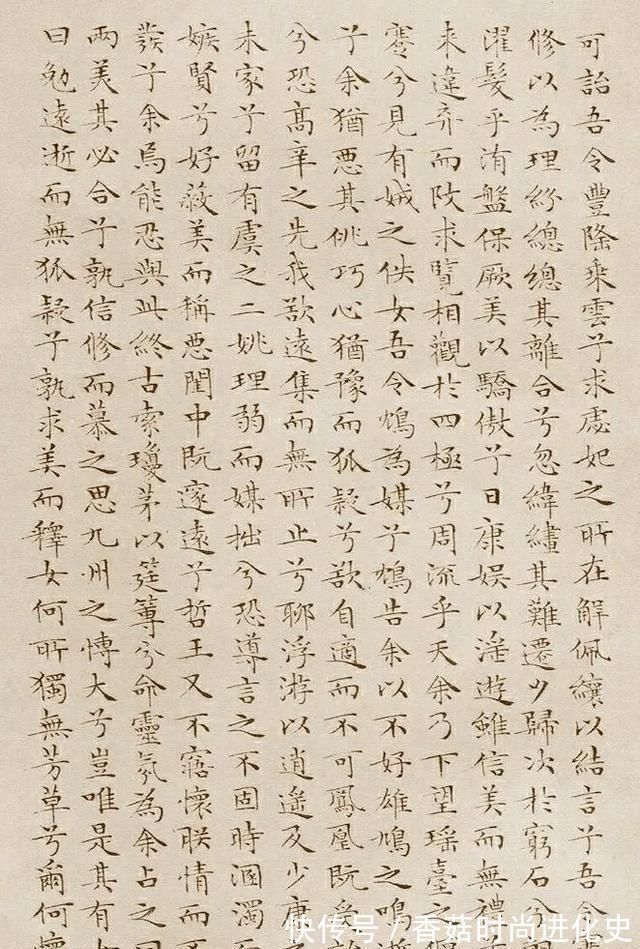 可詒吾令豐隆乘雲兮求虙妃之所在解佩纕以結言兮吾令
修以為理紛總總其離合兮忽緯繣其難遷夕歸次於窮石兮
濯髮乎洧盤保厥美以驕傲兮日康娛以淫遊雖信美而無禮
来違弃而改求覽相觀於四極兮周流乎天余乃下望瑤臺之
蹇兮見有娀之佚女吾令鴆為媒兮鴆告余以不好雄鳩之鳴逝
兮余猶悪其佻巧心猶豫而狐疑兮欲自適而不可鳳凰既受詒
兮恐髙辛之先我欲遠集而無所止兮聊浮游以逍遙及少康
未家兮留有虞之二姚理弱而媒拙兮恐導言之不固時溷濁而
嫉賢兮好蔽美而稱悪閨中既邃遠兮哲王又不寤懷朕情而不
發兮余焉能忍與此終古索瓊茅以筳篿兮命靈氛為余占之曰
兩美其必合兮孰信修而慕之思九州之博大兮豈唯是其有女
曰勉遠逝而無狐疑兮孰求美而釋女何所獨無芳草兮爾何懷
快传号/香菇时尚进化史